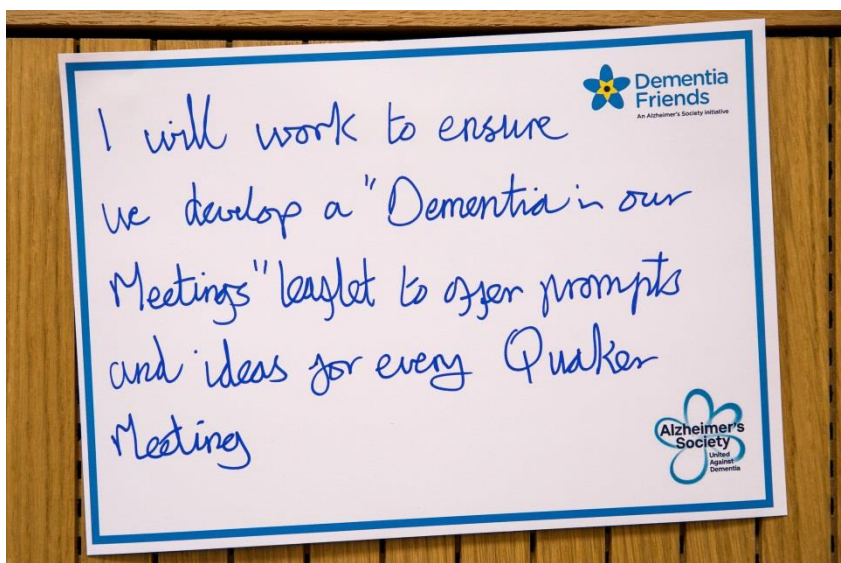 Dementia
Friends
An Alzheimer's Society initiative
I will work to ensure
we develop a "Dementia in our
Meetings" leaflet to offer prompts
and ideas for every Quaker
Meeting
Alzheimer's
Society
United
Against
Dementia